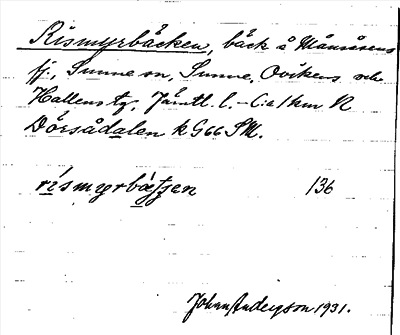 Rismyrbäcken, bäck å Månsåsens
fj., Sunne sn, Sunne, Ovikens och
Hallens tg, Jämtl. l. – C:a 1 km N
Dörsådalen k G66 SM.
rismyrbätjen 136
Johan Anderson 1931.